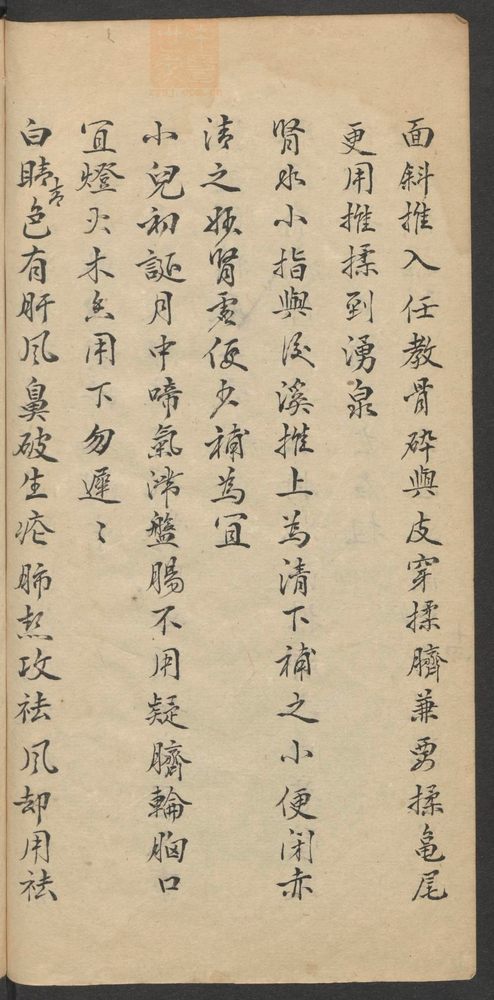 面斜推入任教骨碎與皮穿揉臍兼要揉龜尾
更用推揉到湧泉
腎水小指與後溪推上為清下補之小便闭赤
清之妙腎虛便少補為宜
小兒初誕月中啼氣滞盤腸不用疑臍輪胸口
宜燈火木香用下勿遲〻
白睛青色有肝风鼻破生疮肺热攻祛风却用祛